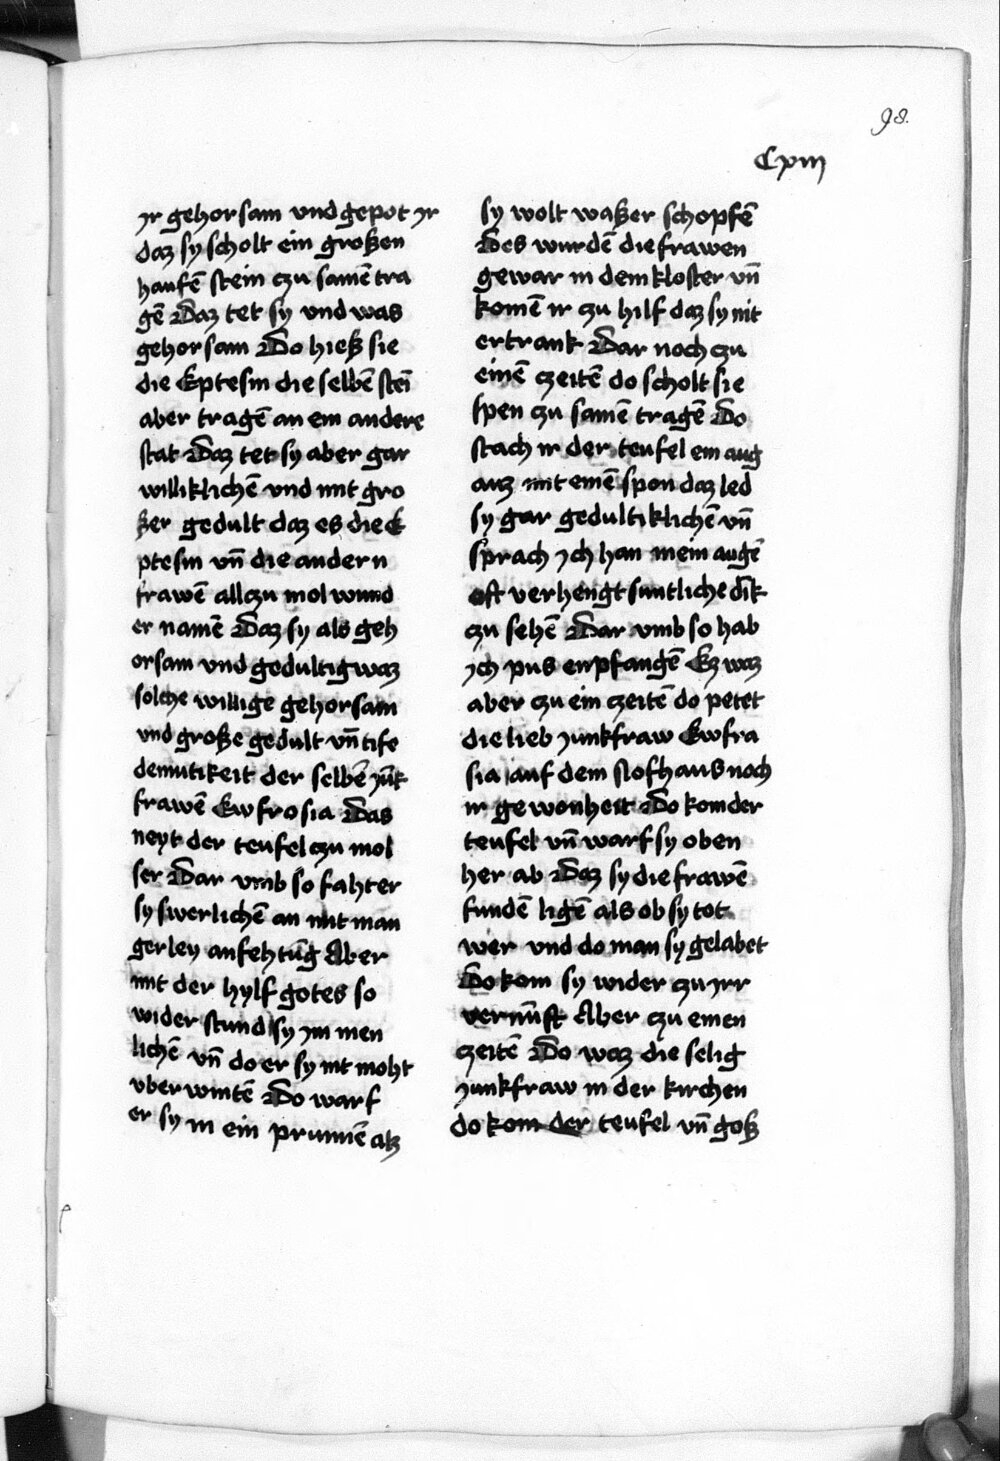 98.
Cxiij
yr gehorsam vnd gepot yr
daz sy scholt ein großen
haufē stein czu samē tra
gē Daz tet sy vnd was
gehorsam Do hieß sie
die Eptesin die selbē stei
aber tragē an ein andere
stat Daz tet sy aber gar
williklichē vnd mit gro
ßer gedult daz es die E
ptesin vn̄ die andern
frawē allczu mol wund
er namē Daz sy als geh
orsam vnd gedultig waz
solche willige gehorsam
vnd große gedult vn̄ tife
demutikeit der selbē jūk
frawē Ewfrosia Das
neyt der teufel czu mol
ser Dar vmb so fahter
sy swerlichē an mit man
gerley anfehtūg Aber
mit der hylf gotes so
wider stund sy ym men
lichē vn̄ do er sy nit moht
vber wintē Do warf
er sy in ein prunnē alz
sy wolt waßer schopfē
Des wurdē die frawen
gewar in dem kloster vn̄
komē ir zu hilf daz sy nit
ertrank Dar noch czu
einē czeitē do scholt sie
spen czu samē tragē Do
stach ir der teufel ein aug
auz mit einē spon daz led
sy gar gedultiklichē vn̄
sprach ych han mein augē
oft verhengt suntliche dīk
czu sehē Dar vmb so hab
ych pus enpfangē Ez waz
aber czu ein czeitē do petet
die lieb junkfraw Ewfra
sia auf dem slofhaus noch
ir gewonheit Do kom der
teufel vn̄ warf sy oben
her ab Daz sy die frawē
fundē ligē als ob sy tot
wer vnd do man sy gelabet
Do kom sy wider czu yrr
vernūft Aber czu einen
czeitē Do waz die selig
junkfraw in der kirchen
do kom der teufel vn̄ goß